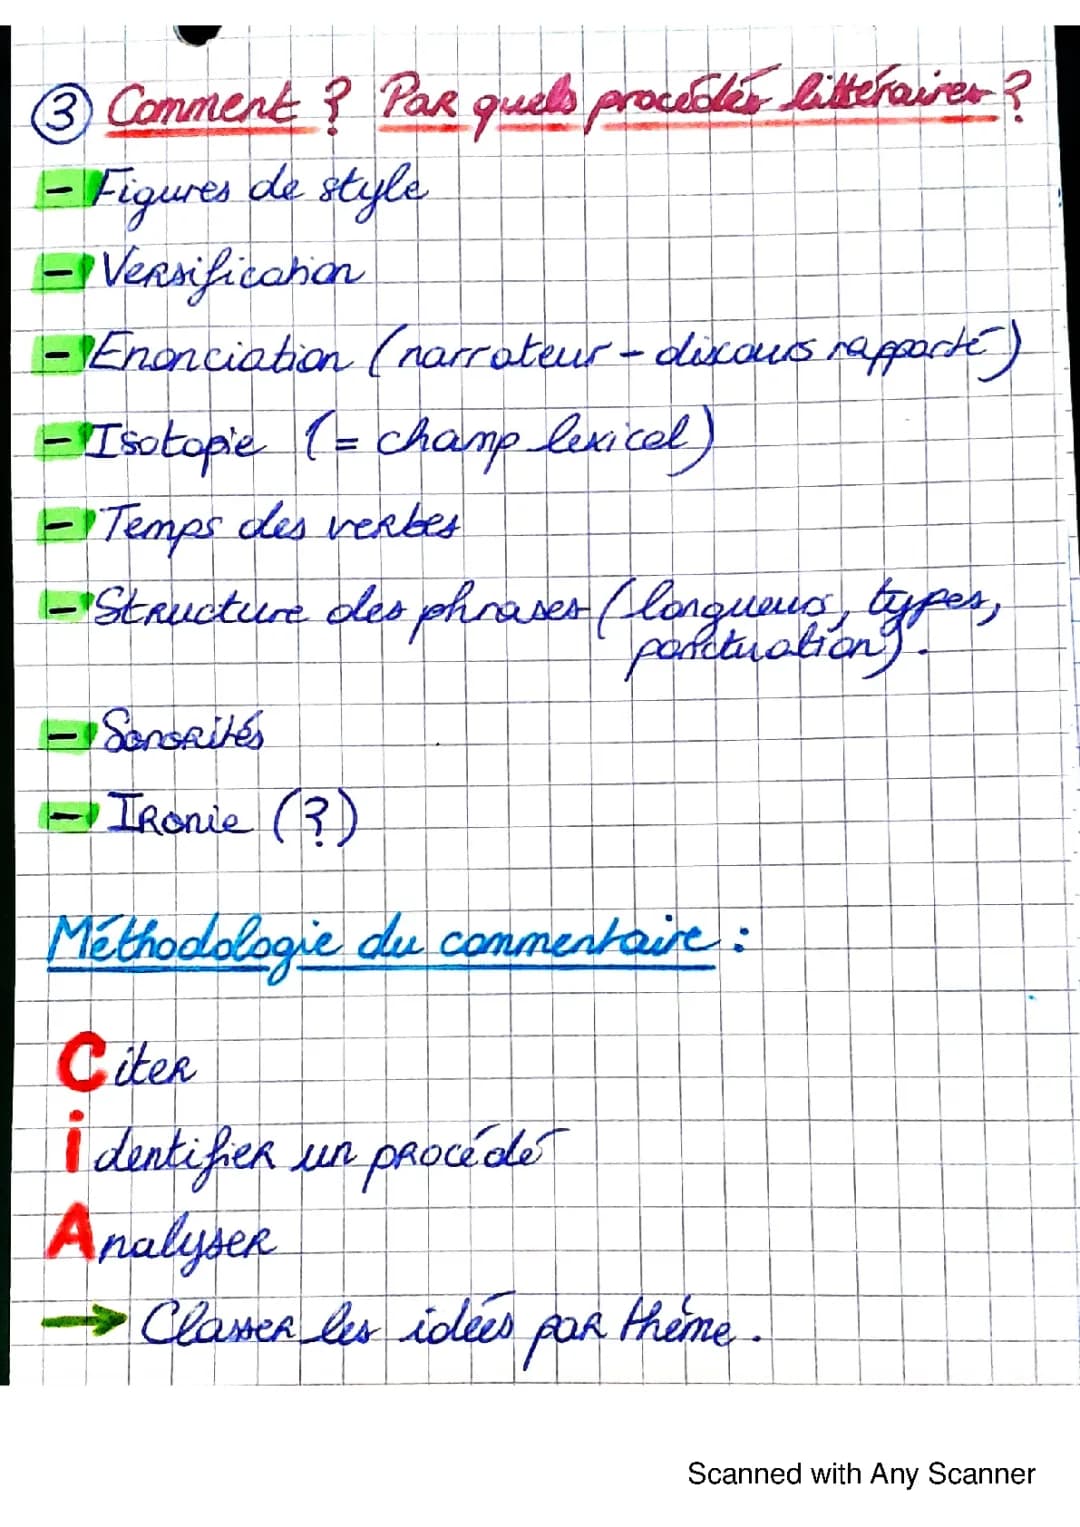 ③ Comment ? Par quels procédés littéraires ?
- Figures de style
- Versification
- Enonciation (narrateur - discours rapporté)
- Isotopie (= champ lexical)
- Temps des verbes
- Structure des phrases (longueurs, types,
ponctuation).
- Sonorités
- Ironie (?)
Méthodologie du commentaire :
Citer
identifier un procédé
Analyser
→ Classer les idées par thème.
Scanned with Any Scanner